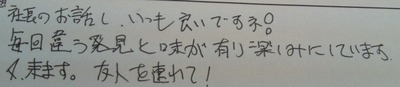 社長のお話し、いつも良いですネ!
毎回違う発見と味が有り楽しみにしています.
又.来ます。友人を連れて!